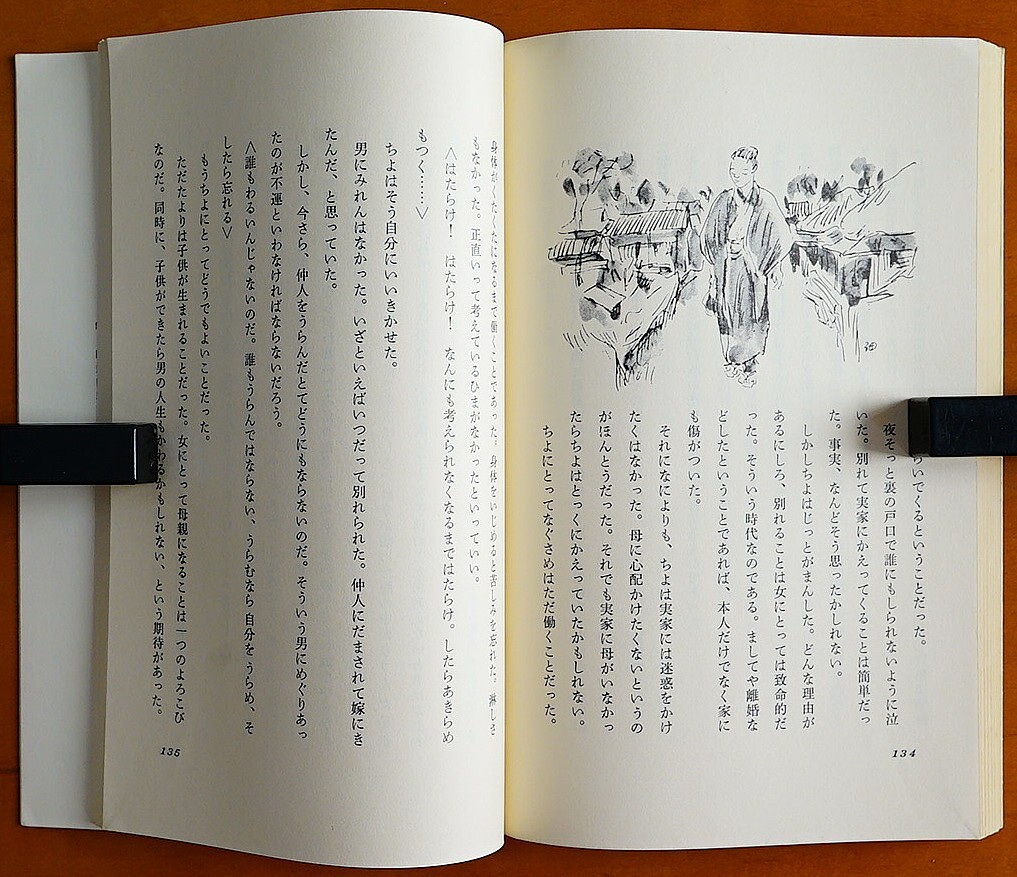 らいでくるということだった。
夜そっと裏の戸口で誰にもしられないように泣
いた。別れて実家にかえってくることは簡単だっ
た。事実、なんどそう思ったかしれない。
しかしちよはじっとがまんした。どんな理由が
あるにしろ、別れることは女にとっては致命的だ
った。そういう時代なのである。ましてや離婚な
どしたということであれば、本人だけでなく家に
も傷がついた。
それになによりも、ちよは実家には迷惑をかけ
たくはなかった。母に心配かけたくないというの
がほんとうだった。それでも実家に母がいなかっ
たらちよはとっくにかえっていたかもしれない。
ちよにとってなぐさめはただ働くことだった。
134
身体がくたくたになるまで働くことであった。身体をいじめると苦しみを忘れた。淋しさ
もなかった。正直いって考えているひまがなかったといっていい。
〈はたらけ！　はたらけ！　なんにも考えられなくなるまではたらけ。したらあきらめ
もつく……〉
ちよはそう自分にいいきかせた。
男にみれんはなかった。いざといえばいつだって別れられた。仲人にだまされて嫁にき
たんだ、と思っていた。
しかし、今さら、仲人をうらんだとてどうにもならないのだ。そういう男にめぐりあっ
たのが不運といわなければならないだろう。
〈誰もわるいんじゃないのだ。誰もうらんではならない、うらむなら自分をうらめ、そ
したら忘れる〉
もうちよにとってどうでもよいことだった。
ただたよりは子供が生まれることだった。女にとって母親になることは一つのよろこび
なのだ。同時に、子供ができたら男の人生もかわるかもしれない、という期待があった。
135